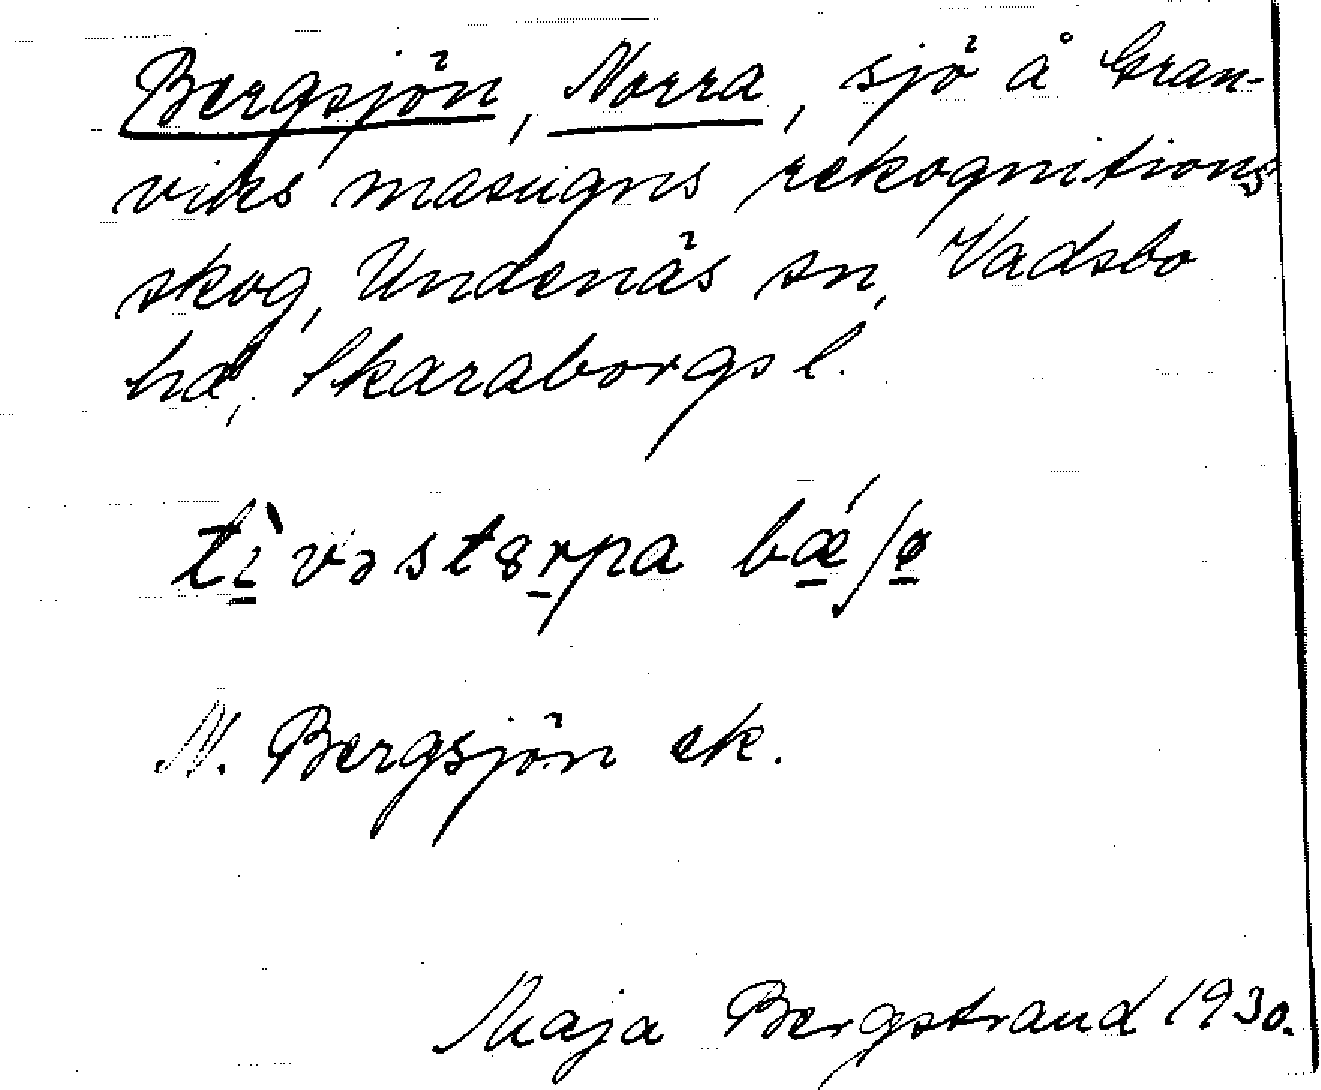 Bergsjön, Norra, sjö å Gran-
viks masugns rekognitions
skog, Undenäs sn, Vadsbo
hd, Skaraborgs l.
N. Bergsjön ek.
Maja Bergstrand 1930.